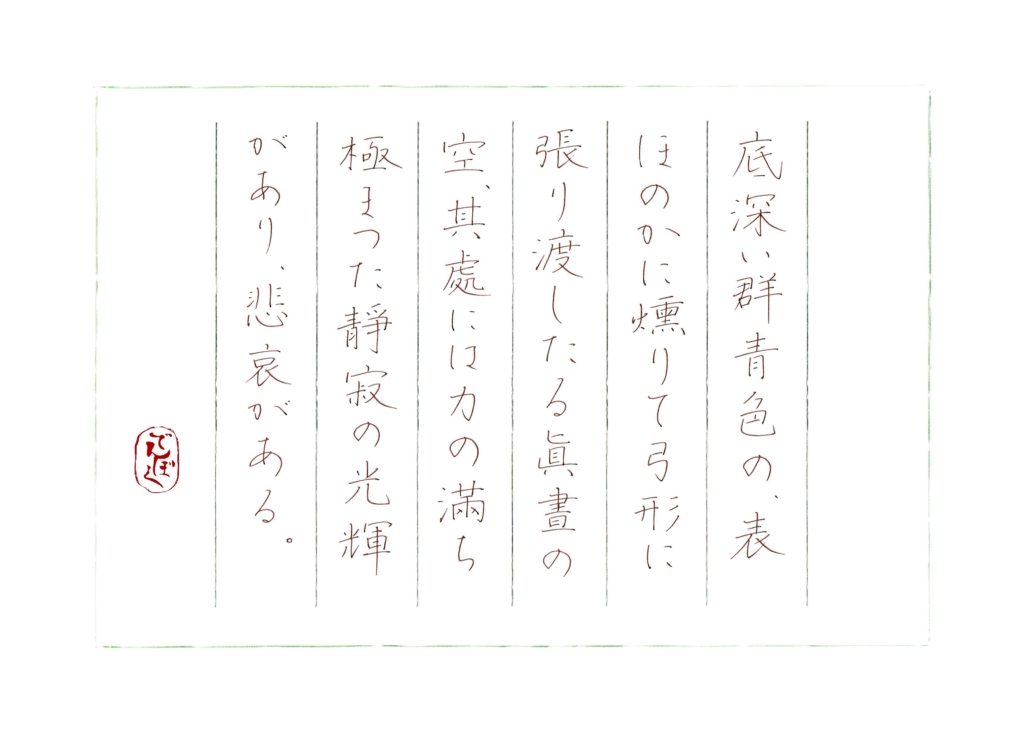 底深い群青色の、表
ほのかに燻りて弓形に
張り渡したる眞晝の
空、其處には力の満ち
極まつた靜寂の光輝
があり、悲哀がある。
でんぼく